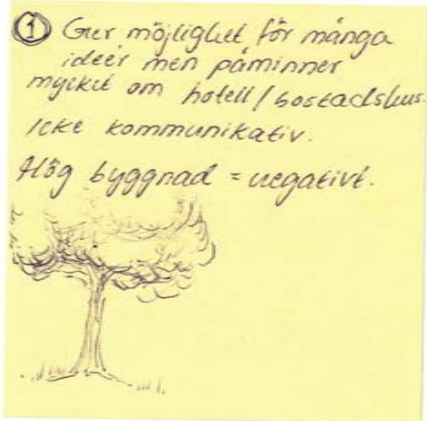 ① Ger möjlighet för många
idéer men påminner
mycket om hotell/bostadshus.
Icke kommunikativ.
Hög byggnad = negativt.